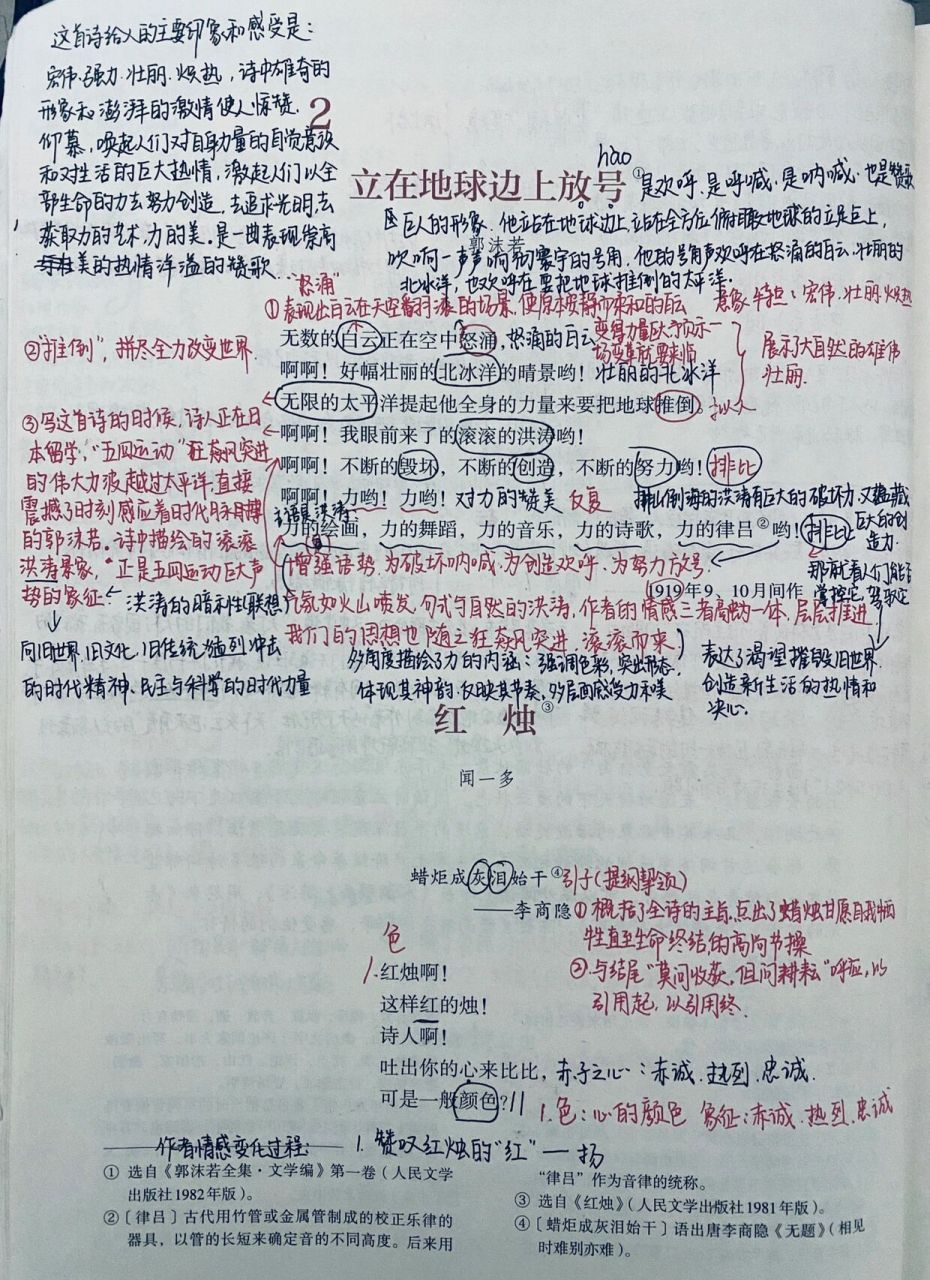 这首诗给人的主要印象和感受是:
宏伟·强力·壮丽·炽热，诗中雄奇的
形象和澎湃的激情使人惊赞、
仰慕，唤起人们对自身力量的自觉
和对生活的巨大热情，激起人们以全
部生命的力去努力创造，去追求光明，去
获取力的艺术，力的美。是一曲表现崇高
美的热情洋溢的赞歌
2
hào
立在地球边上放号①
是欢呼、是呼喊、是呐喊、也是赞歌
郭沫若
巨人的形象。他立站在地球边上，站在全方位俯瞰地球的立足上，
吹响一声声响彻寰宇的号角，他的号角声欢呼在怒涌的白云、壮丽的
北冰洋，也欢呼在要把地球推倒的太平洋。
"怒涌"
①表现出白云在天空翻滚的场景，使原本安静而柔和的白云
变得力量巨大，预示一
场变革就要来临
意象特点：宏伟、壮丽、炽热
展示大自然的雄伟
壮丽.
②"推倒"，拼尽全力改变世界
无数的白云正在空中怒涌，
怒涌的白云
啊啊！好幅壮丽的北冰洋的晴景哟！
壮丽的北冰洋
无限的太平洋提起他全身的力量来要把地球推倒。
拟人
啊啊！我眼前来了的滚滚的洪涛哟！
啊啊！不断的毁坏，不断的创造，不断的努力哟！
排比
啊啊！力哟！力哟！
对力的赞美
反复
力的绘画，力的舞蹈，力的音乐，力的诗歌，力的律吕②哟！
排比
③写这首诗的时候，诗人正在日
本留学，"五四运动"狂飙突进
的伟大力波越过太平洋，直接
震撼了时刻感应着时代脉搏
的郭沫若。诗中描绘的滚滚
洪涛景象，"正是五四运动巨大声
势的象征
排山倒海的洪涛有巨大的破坏力，又蕴藏
巨大的创
造力.
那就看人们能否
掌控它，驾驭它
增强语势，为破坏呐喊，为创造欢呼，为努力放号。
1919年9、10月间作
洪涛的暗示性联想
气氛如火山喷发，句式与自然的洪涛，作者的情感三者高融一体，层层推进
我们的思想也随之狂飙突进，滚滚而来
向旧世界、旧文化、旧传统猛烈冲击
的时代精神、民主与科学的时代力量
多角度描绘了力的内涵：强调色彩，突出形态，
体现其神韵，反映其节奏，多层面感受力和美
表达了渴望摧毁旧世界、
创造新生活的热情和
决心.
红 烛③
闻一多
蜡炬成灰泪始干④
引子（提纲挈领）
——李商隐
①概括了全诗的主旨，点出了蜡烛甘愿自我牺
牲直至生命终结的高尚节操
②与结尾"莫问收获，但问耕耘"呼应，以
引用起，以引用终.
色
1.
红烛啊！
这样红的烛！
诗人啊！
吐出你的心来比比，
赤子之心：赤诚、热烈、忠诚.
可是一般颜色？
1.色：心的颜色 象征：赤诚、热烈、忠诚
作者情感变化过程:
1.赞叹红烛的"红"—扬
① 选自《郭沫若全集·文学编》第一卷（人民文学
出版社1982年版）。
② 〔律吕〕古代用竹管或金属管制成的校正乐律的
器具，以管的长短来确定音的不同高度。后来用
"律吕"作为音律的统称。
③ 选自《红烛》（人民文学出版社1981年版）。
④ 〔蜡炬成灰泪始干〕语出唐李商隐《无题》（相见
时难别亦难）。